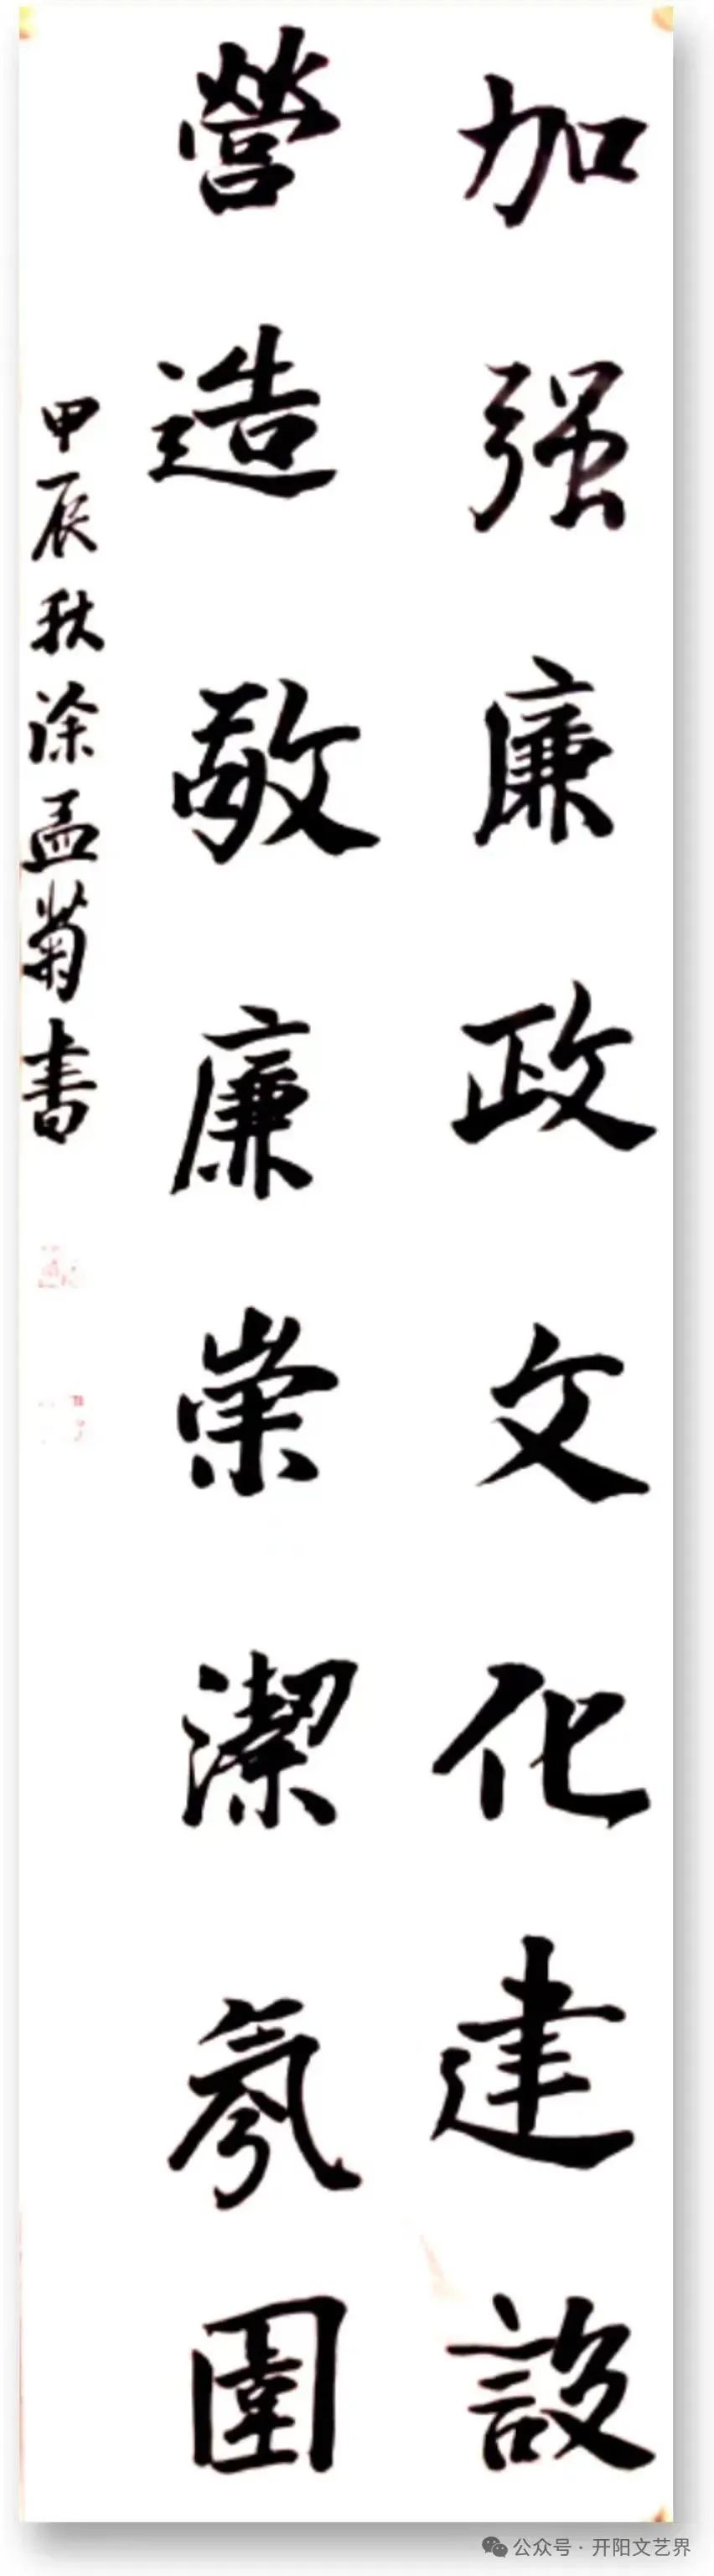 加强廉政文化建設
營造敬廉崇潔氛圍
甲辰秋涂孟菊書
公众号·开阳文艺界